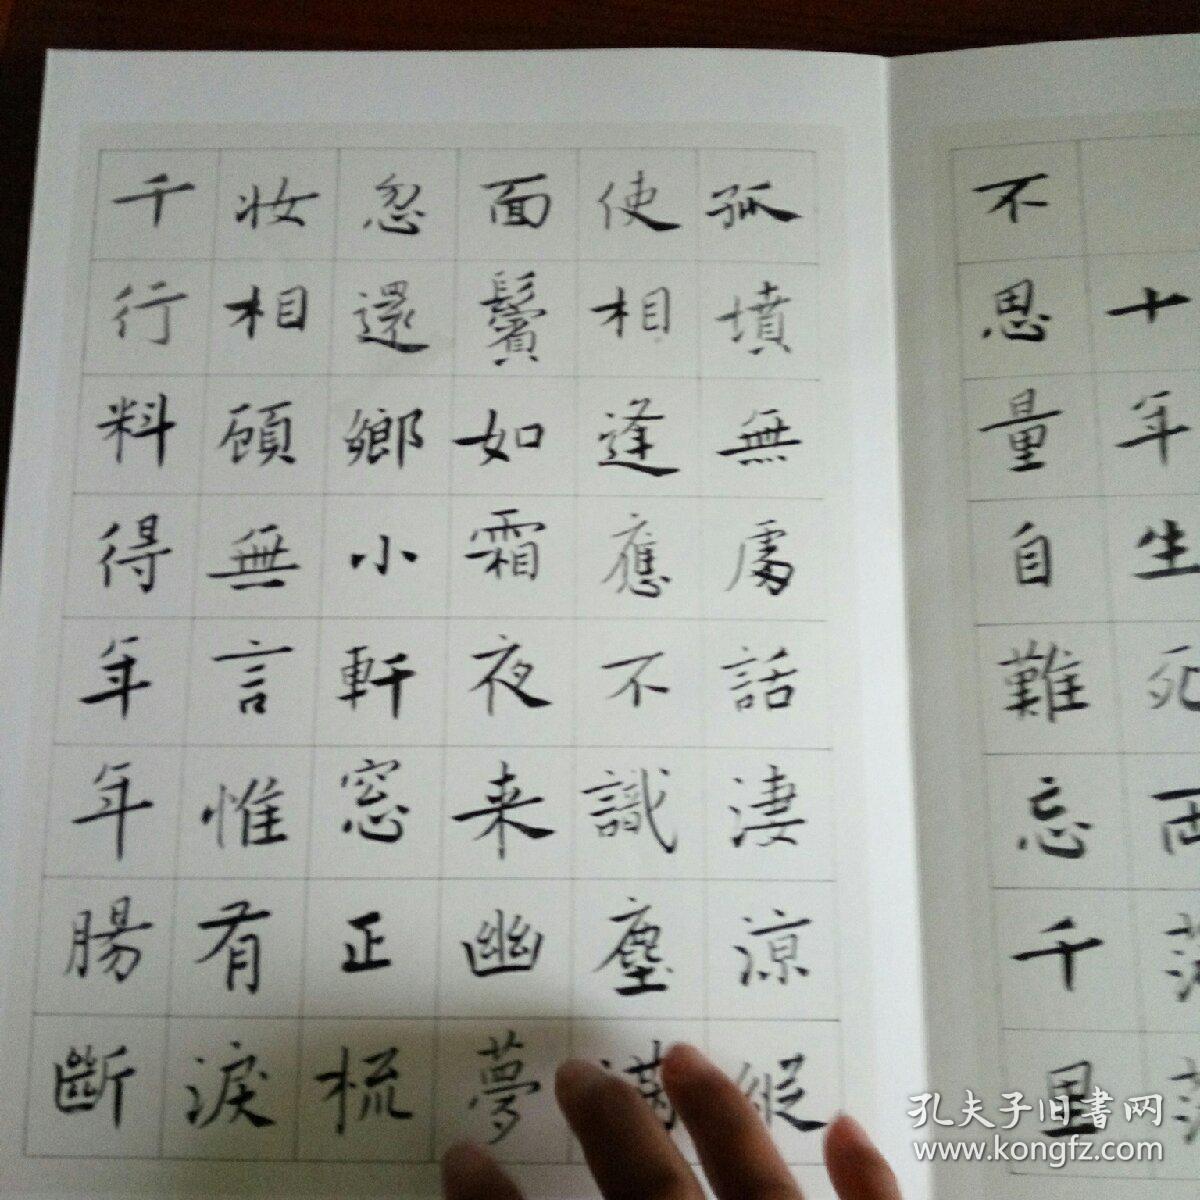 十年生死
不思量自難忘千里
孤墳無處話淒涼縱
使相逢應不識塵滿
面鬢如霜夜来幽夢
忽還鄉小軒窓正梳
妝相顧無言惟有淚
千行料得年年腸斷
孔夫子旧書网
www.kongfz.com